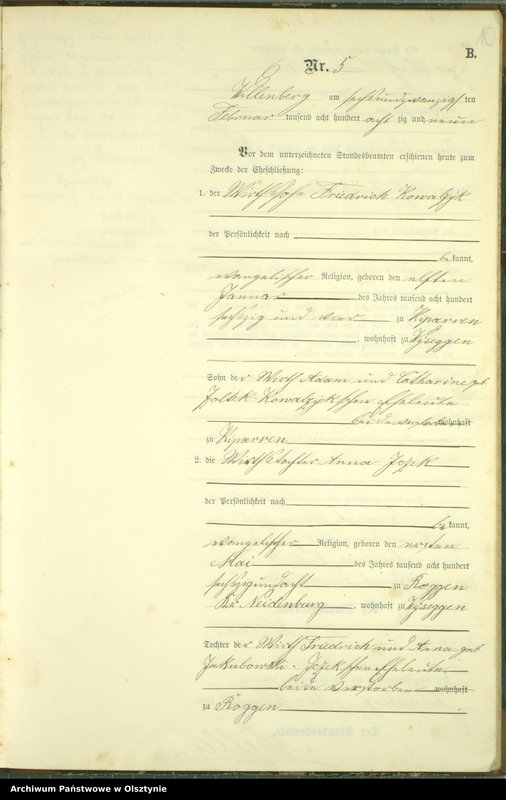 10
B.
Nr. 5
Willenberg am sechsundzwanzigsten
Februar tausend acht hundert acht zig und neun
Vor dem unterzeichneten Standesbeamten erschienen heute zum
Zwecke der Eheschließung:
1. der Wirthssohn Friedrich Kowalzyk
der Persönlichkeit nach
be kannt,
evangelischer Religion, geboren den elften
Januar des Jahres tausend acht hundert
sechszig und vier zu Kiparren
, wohnhaft zu
Sohn der Wirth Adam und Catharine geb.
Kowalzyk'schen Eheleute
beide verstorben wohnhaft
zu Kiparren
2. die Wirthstochter Anna Jozek
der Persönlichkeit nach
be kannt,
evangelischer Religion, geboren den ersten
Mai des Jahres tausend acht hundert
sechszig und acht zu Roggen
Kr. Neidenburg, wohnhaft zu
Tochter der Wirth Friedrich und Anna geb.
Jakubowski Jozek'schen Eheleute
beide verstorben wohnhaft
zu Roggen
Archiwum Państwowe w Olsztynie